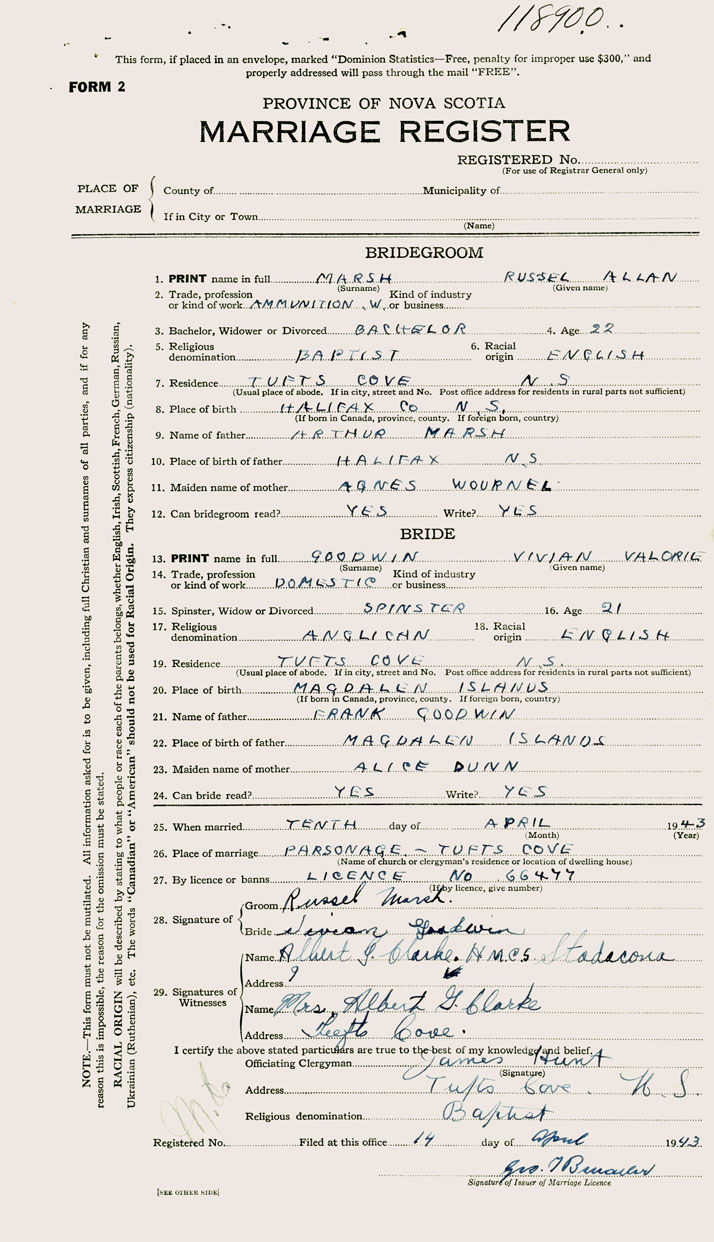 118900..
This form, if placed in an envelope, marked "Dominion Statistics—Free, penalty for improper use $300," and
properly addressed will pass through the mail "FREE".
FORM 2
PROVINCE OF NOVA SCOTIA
MARRIAGE REGISTER
REGISTERED No.
(For use of Registrar General only)
PLACE OF MARRIAGE
County of Municipality of
If in City or Town
(Name)
BRIDEGROOM
1. PRINT name in full MARSH RUSSEL ALLAN
(Surname) (Given name)
2. Trade, profession or kind of work AMMUNITION W. Kind of industry or business
3. Bachelor, Widower or Divorced BACHELOR 4. Age 22
5. Religious denomination BAPTIST 6. Racial origin ENGLISH
7. Residence TUFTS COVE N.S
(Usual place of abode. If in city, street and No. Post office address for residents in rural parts not sufficient)
8. Place of birth HALIFAX Co N.S.
(If born in Canada, province, county. If foreign born, country)
9. Name of father ARTHUR MARSH
10. Place of birth of father HALIFAX N.S
11. Maiden name of mother AGNES WOURNEL
12. Can bridegroom read? YES Write? YES
BRIDE
13. PRINT name in full GOODWIN VIVIAN VALORIE
(Surname) (Given name)
14. Trade, profession or kind of work DOMESTIC Kind of industry or business
15. Spinster, Widow or Divorced SPINSTER 16. Age 21
17. Religious denomination ANGLICAN 18. Racial origin ENGLISH
19. Residence TUFTS COVE N.S.
(Usual place of abode. If in city, street and No. Post office address for residents in rural parts not sufficient)
20. Place of birth MAGDALEN ISLANDS
(If born in Canada, province, county. If foreign born, country)
21. Name of father FRANK GOODWIN
22. Place of birth of father MAGDALEN ISLANDS
23. Maiden name of mother ALICE DUNN
24. Can bride read? YES Write? YES
25. When married TENTH day of APRIL 1943
(Month) (Year)
26. Place of marriage PARSONAGE – TUFTS COVE
(Name of church or clergyman's residence or location of dwelling house)
27. By licence or banns LICENCE No 66477
(If by licence, give number)
28. Signature of
Groom Russel Marsh.
Bride Vivian Goodwin
29. Signatures of Witnesses
Name Albert G. Clarke. H.M.C.S. Stadacona
Address ?
Name Mrs. Albert G. Clarke
Address Tufts Cove.
I certify the above stated particulars are true to the best of my knowledge and belief.
Officiating Clergyman James Hunt
(Signature)
Address Tufts Cove. N.S.
Religious denomination Baptist
Registered No. Filed at this office 14 day of April 1943
Geo.
Signature of Issuer of Marriage Licence
[SEE OTHER SIDE]
NOTE.—This form must not be mutilated. All information asked for is to be given, including full Christian and surnames of all parties, and if for any
reason this is impossible, the reason for the omission must be stated.
RACIAL ORIGIN will be described by stating to what people or race each of the parents belongs, whether English, Irish, Scottish, French, German, Russian,
Ukrainian (Ruthenian), etc. The words "Canadian" or "American" should not be used for Racial Origin. They express citizenship (nationality).